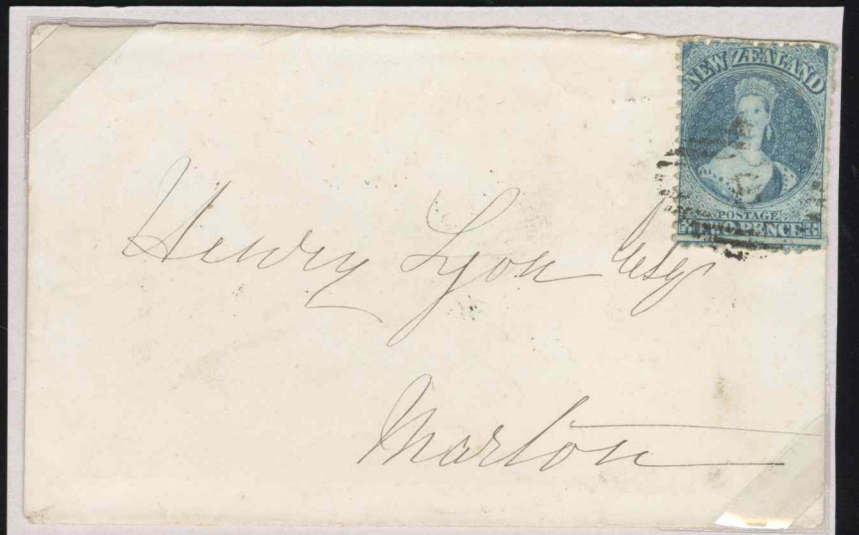 NEW ZEALAND
POSTAGE
TWO PENCE
Henry Lyon Esqr
Marton